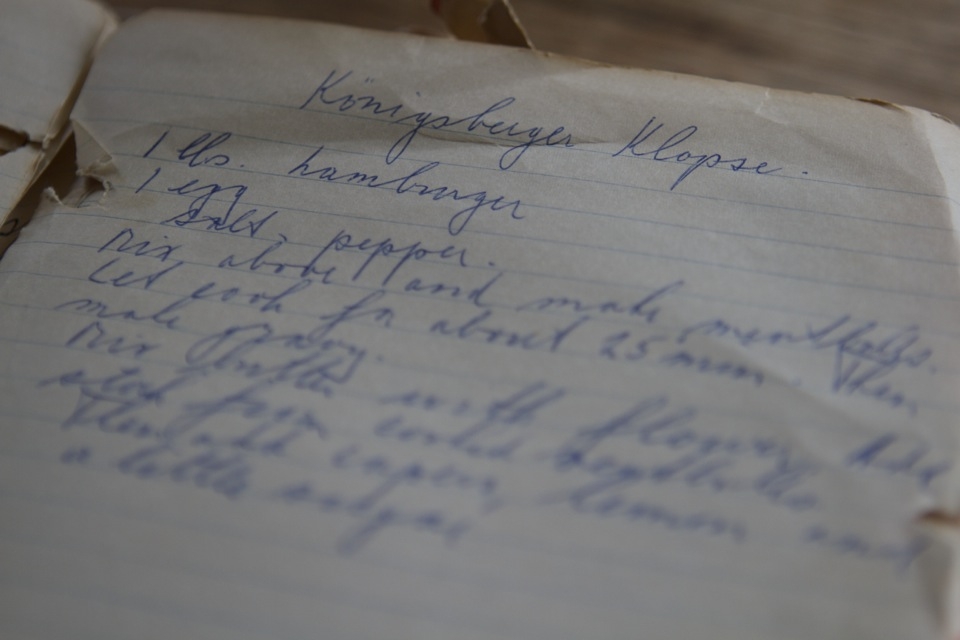 Königsberger Klopse.
1 lbs. hamburger
1 egg
Salt, pepper.
Mix above and make meatballs.
Let cook for about 25 min. Then
make gravy.
Mix butter with flower. Add
stock from cooked meatballs
Then add capers, lemon and
a little